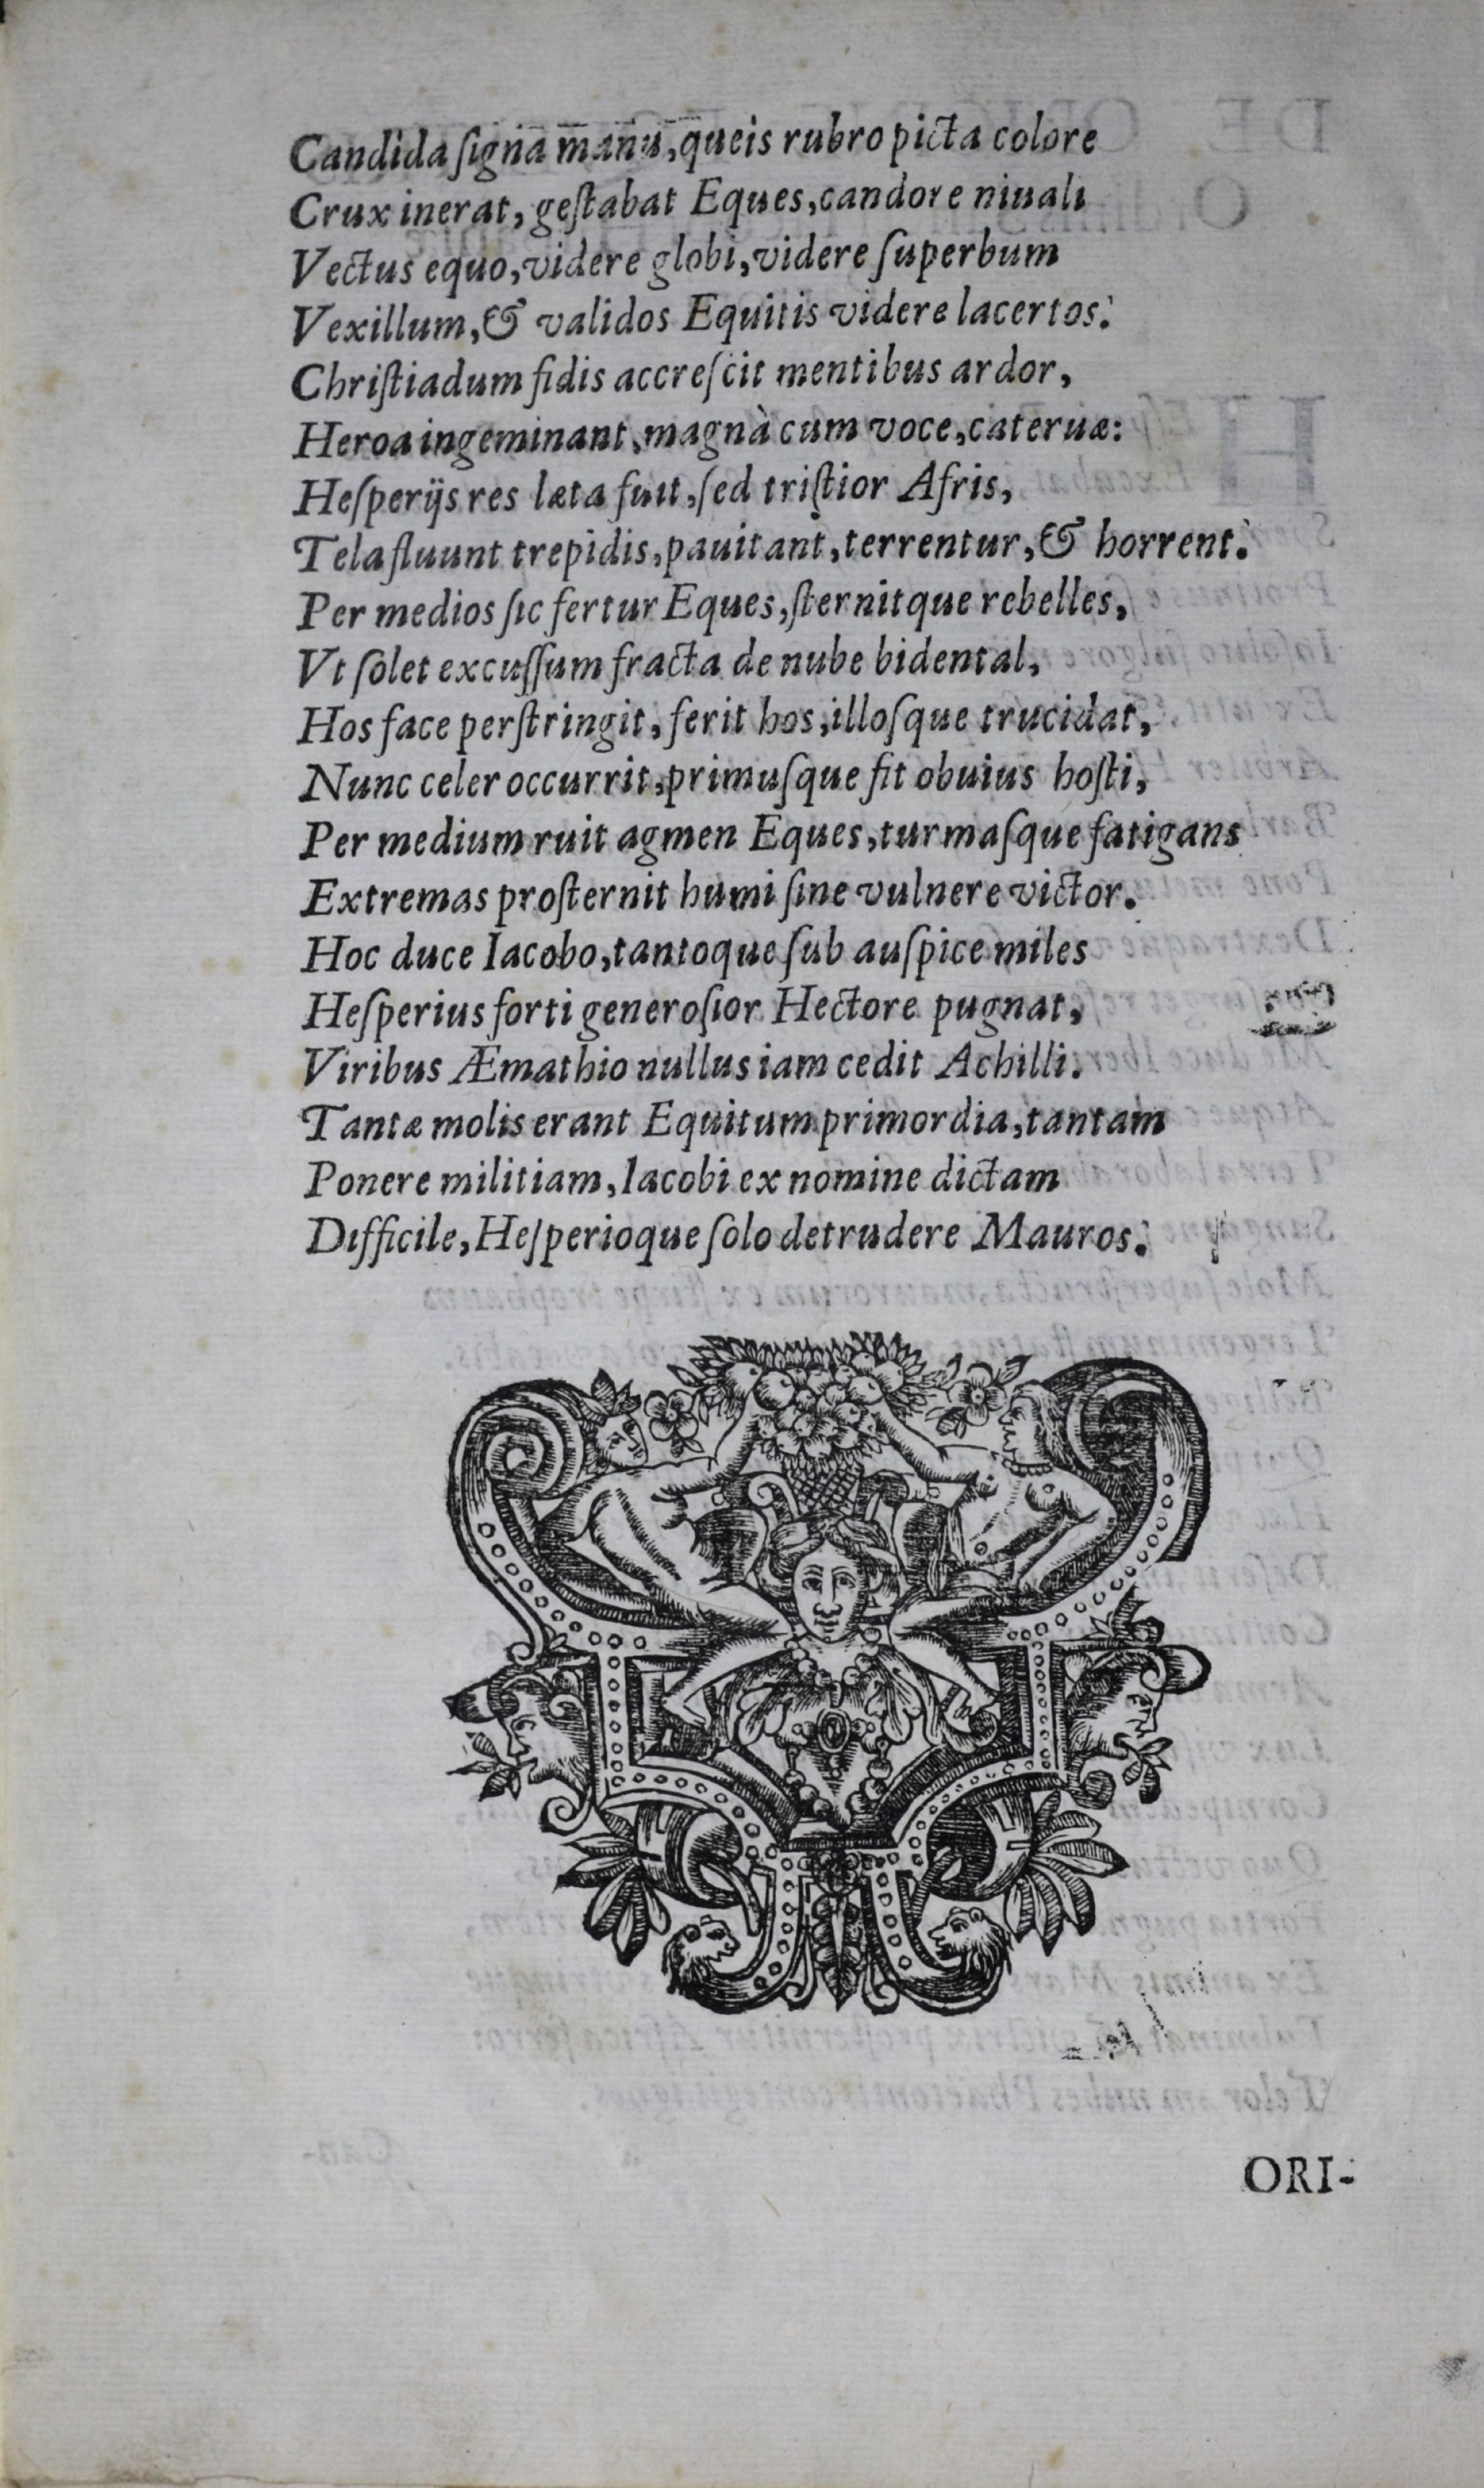 Candida ſigna manu, queis rubro picta colore
Crux inerat, geſtabat Eques, candore niuali
Vectus equo, videre globi, videre ſuperbum
Vexillum, & validos Equitis videre lacertos.
Chriſtiadum fidis accreſcit mentibus ardor,
Heroa ingeminant, magnà cum voce, cateruæ:
Heſperijs res læta fuit, ſed triſtior Afris,
Tela fluunt trepidis, pauitant, terrentur, & horrent.
Per medios ſic fertur Eques, ſternitque rebelles,
Vt ſolet excuſſum fracta de nube bidental,
Hos face perſtringit, ferit hos, illoſque trucidat,
Nunc celer occurrit, primuſque fit obuius hoſti,
Per medium ruit agmen Eques, turmaſque fatigans
Extremas proſternit humi ſine vulnere victor.
Hoc duce Iacobo, tantoque ſub auſpice miles
Heſperius forti generoſior Hectore pugnat,
Viribus Æmathio nullus iam cedit Achilli.
Tantæ molis erant Equitum primordia, tantam
Ponere militiam, Iacobi ex nomine dictam
Difficile, Heſperioque ſolo detrudere Mauros.
ORI-